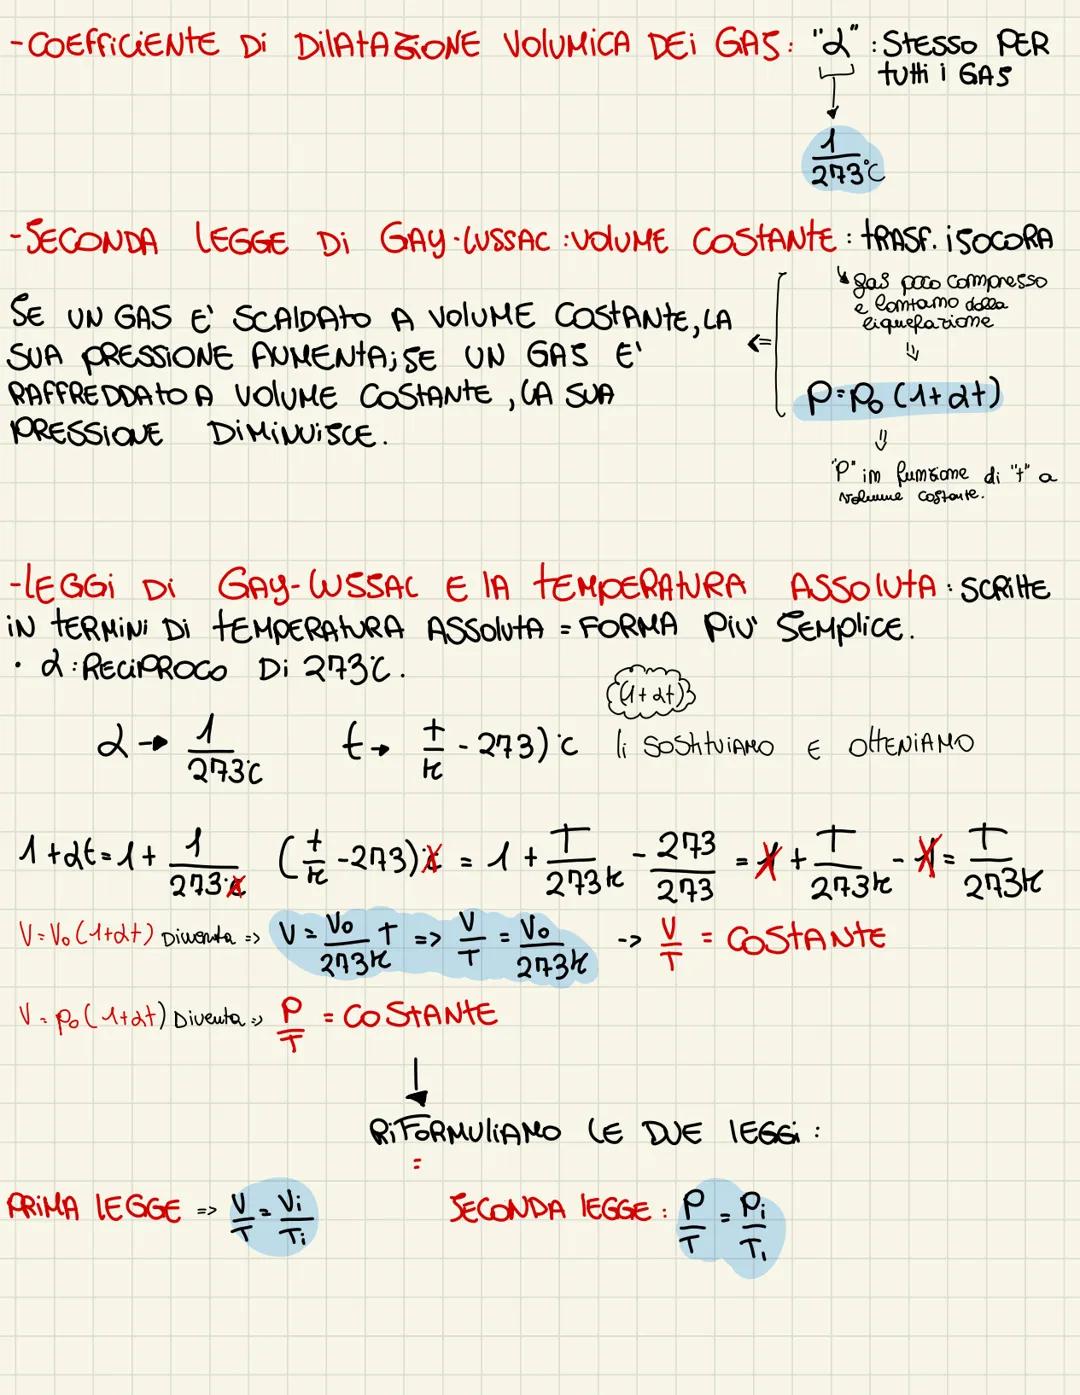 -COEFFICIENTE Di DilATAZiONE VOLUMICA DEi GAS: "α" : STESSO PER
tutti i GAS
1/273°C
-SECONDA LEGGE Di GAY-LUSSAC : VOLUME COSTANTE : tRASF. iSOCORA
gas poco compresso
e lontano dalla
liquefazione
SE UN GAS E' SCALDATO A VOLUME COSTANTE, LA
SUA PRESSIONE AUMENTA; SE UN GAS E'
RAFFREDDATO A VOLUME COSTANTE, LA SUA
PRESSIONE DIMINUISCE.
<=
⇓
P=P₀ (1+αt)
⇓
"P" in funzione di "t" a
volume costante.
-LEGGi Di GAY-LUSSAC E lA tEMPERATURA ASSOLUTA : SCRITTE
iN tERMiNi Di tEMPERATURA ASSOLUTA = FORMA PIU' SEMPLICE.
· α : RECIPROCO Di 273°C.
(1+αt)
α → 1/273°C t → t/k - 273)°C li SOSTITUIAMO E OTTENIAMO
1+αt = 1 + 1/273°C (t/k - 273)°C = 1 + T/273k - 273/273 = 1 + T/273k - 1 = T/273k
V=V₀(1+αt) Diventa => V = V₀/273k T => V/T = V₀/273k -> V/T = COSTANTE
V = p₀(1+αt) Diventa => P/T = COSTANTE
↓
RiFORMULIAMO LE DUE lEGGi :
=
PRIMA lEGGE => V/T = Vi/Ti SECONDA lEGGE : P/T = Pi/T₁